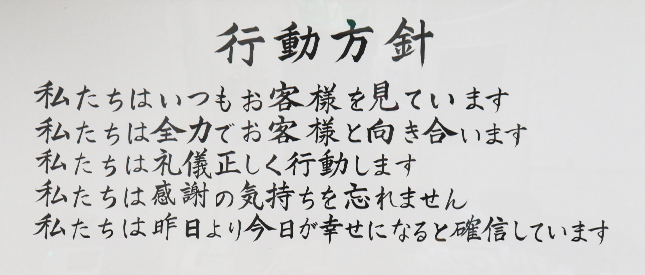 行動方針
私たちはいつもお客様を見ています
私たちは全力でお客様と向き合います
私たちは礼儀正しく行動します
私たちは感謝の気持ちを忘れません
私たちは昨日より今日が幸せになると確信しています